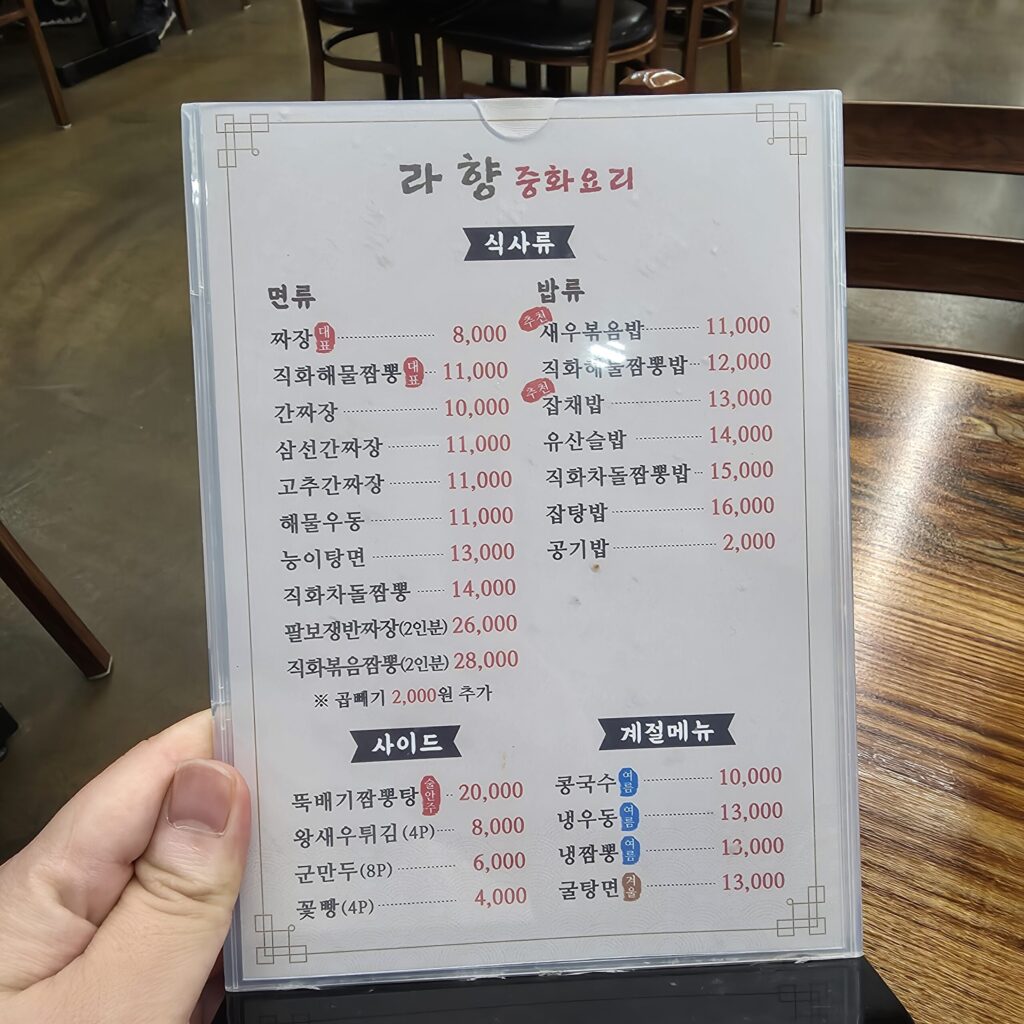 라향 중화요리
식사류
면류
짜장 대표 8,000
직화해물짬뽕 대표 11,000
간짜장 10,000
삼선간짜장 11,000
고추간짜장 11,000
해물우동 11,000
능이탕면 13,000
직화차돌짬뽕 14,000
팔보쟁반짜장(2인분) 26,000
직화볶음짬뽕(2인분) 28,000
※ 곱빼기 2,000원 추가
밥류
추천 새우볶음밥 11,000
직화해물짬뽕밥 12,000
추천 잡채밥 13,000
유산슬밥 14,000
직화차돌짬뽕밥 15,000
잡탕밥 16,000
공기밥 2,000
사이드
뚝배기짬뽕탕 술안주 20,000
왕새우튀김(4P) 8,000
군만두(8P) 6,000
꽃빵(4P) 4,000
계절메뉴
콩국수 여름 10,000
냉우동 여름 13,000
냉짬뽕 여름 13,000
굴탕면 겨울 13,000